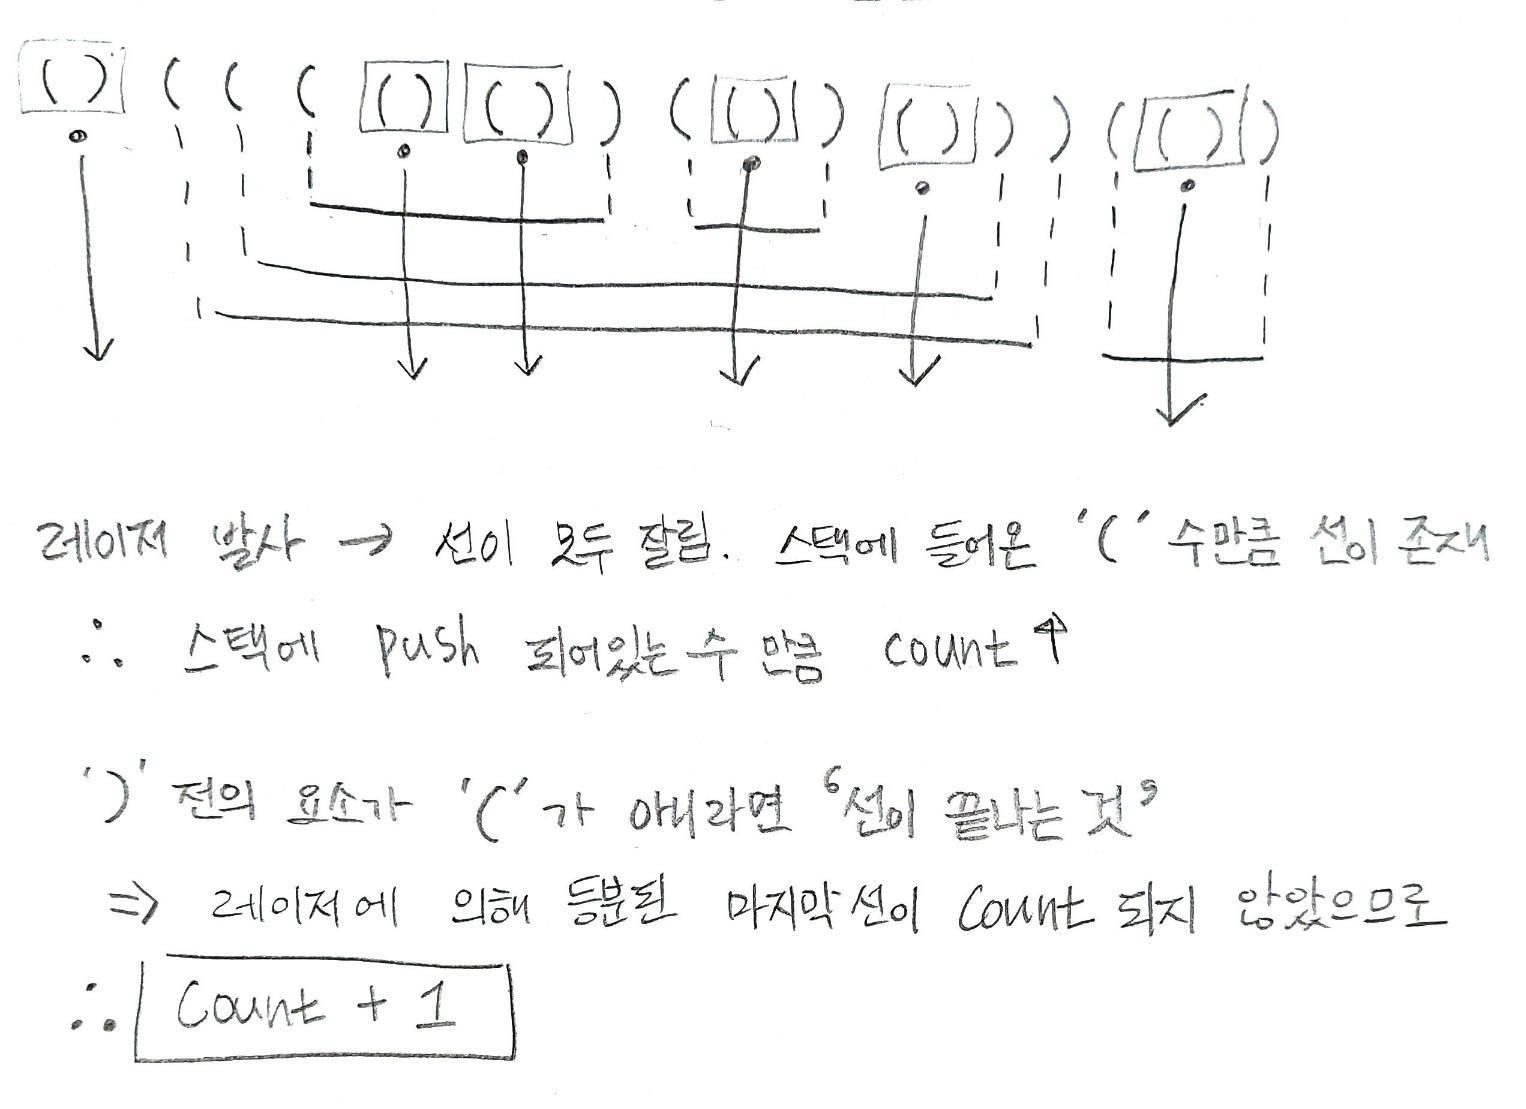 ()(((()())(())())))(())
레이저 발사 → 선이 모두 잘림. 스택에 들어온 '(' 수만큼 선이 존재
∴ 스택에 push 되어있는 수 만큼 count↑
')' 전의 요소가 '('가 아니라면 '선이 끝나는 것'
⇒ 레이저에 의해 등분된 마지막 선이 count 되지 않았으므로
∴ Count + 1